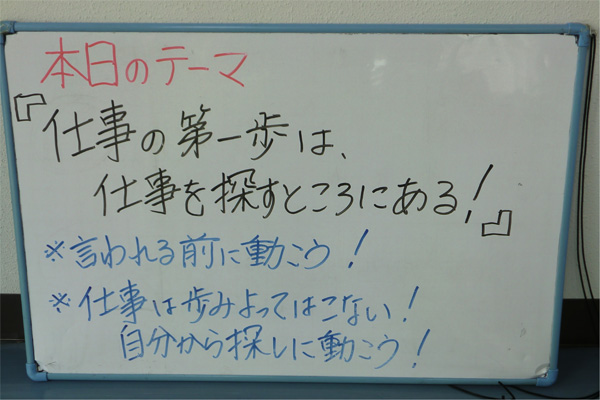 本日のテーマ
『仕事の第一歩は、
仕事を探すところにある!』
※言われる前に動こう!
※仕事は歩みよってはこない!
自分から探しに動こう!